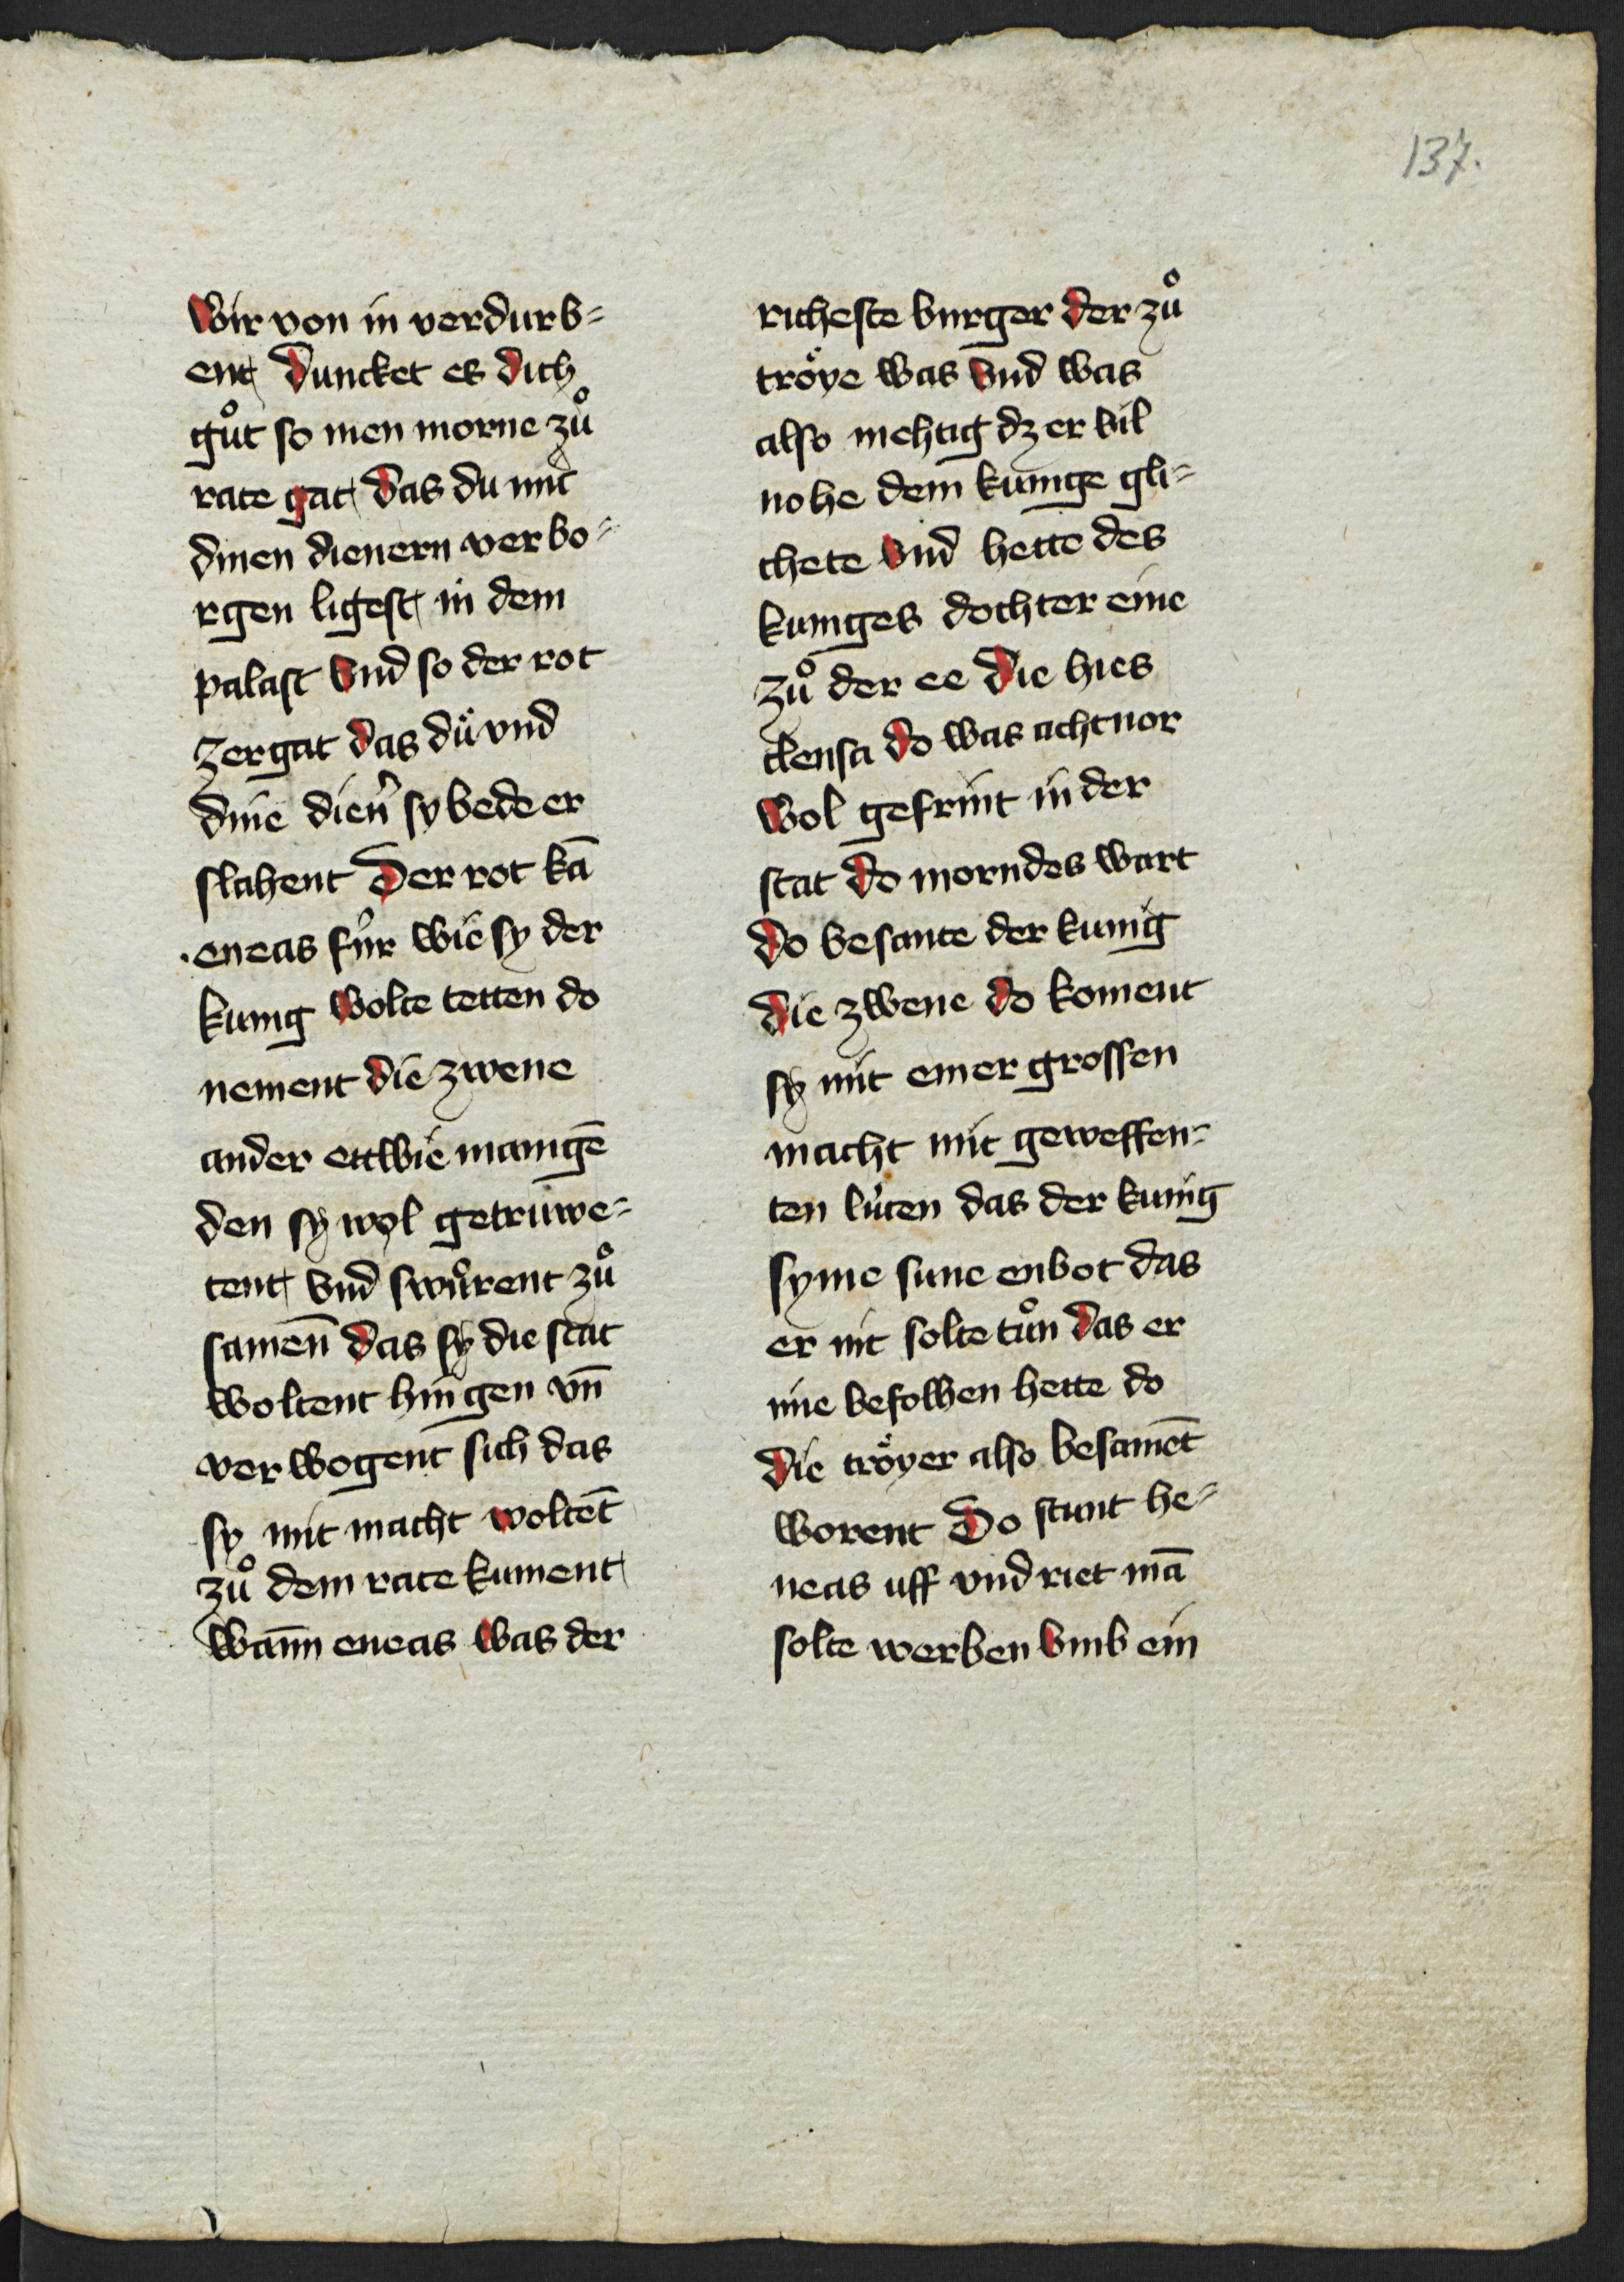 137.
wir von in verdurb=
ent duncket es dich
gůt so men morne zů
rate gat das du mit
dinen dienern verbo=
rgen ligest in dem
palast vnd so der rot
zergat das dů vnd
dine dien̾ sy bede er
slahent Der rot kā
eneas für wie sy der
kunig wolte tetten do
nement die zwene
ander ettwie manigē
den sy wol getruwe=
tent vnd swůrent zů
samen̄ das sy die stat
woltent hin gen vn̄
verwogent sich das
sy mit macht woltēt
zů dem rate kument
wann̄ eneas was der
richeste burger der zů
tröye was vnd was
also mehtig dz er vil
nohe dem kunige gli=
chete vnd hette des
kuniges dochter eine
zů der ee die hies
clensa do was achtnor
wol gefrint in der
stat do morndes wart
do besante der kunig
die zwene do koment
sy mit einer grossen
macht mit geweffen=
ten lüten das der kunig
syme sune enbot das
er nit solte tůn das er
ime befolhen hette do
die tröyer also besamēt
worent Do stunt he=
neas uff vnd riet mā
solte werben vmb ein